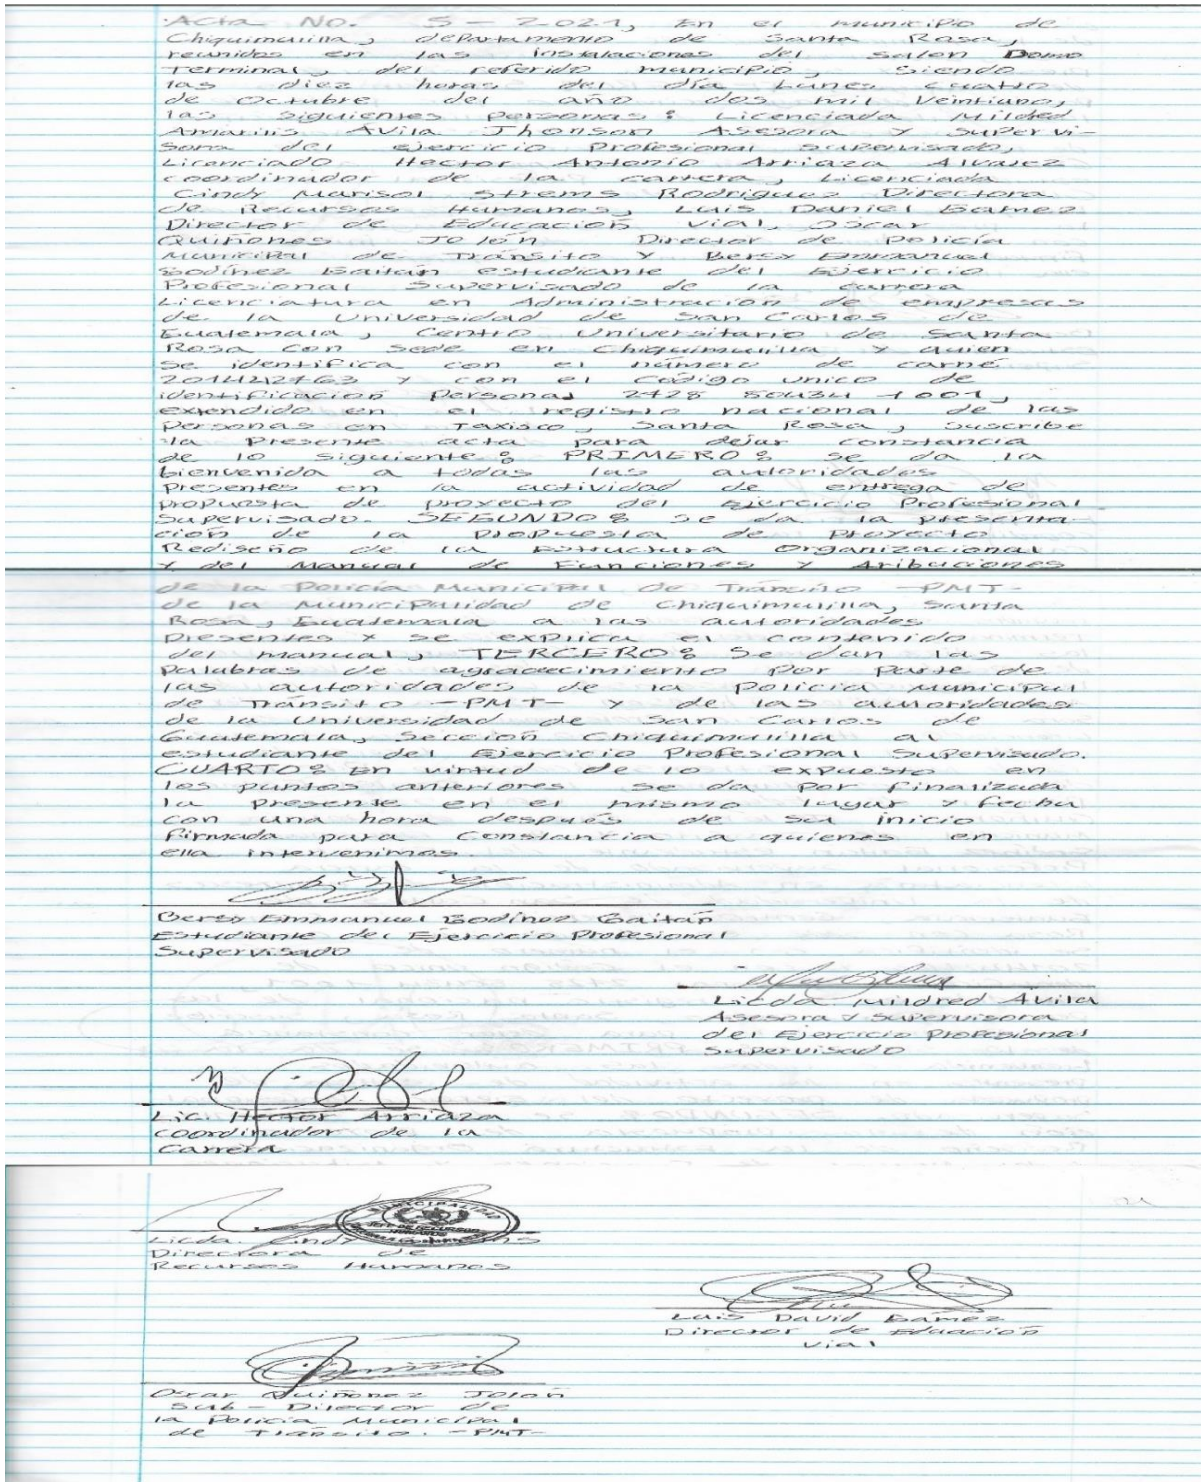 Acta No. 5-2021, En el municipio de
Chiquimulilla, departamento de Santa Rosa,
reunidos en las instalaciones del salon Domo
Terminal, del referido municipio, siendo
las diez horas del día Lunes cuatro
de Octubre del año dos mil Veintiuno,
las siguientes personas: Licenciada Mildred
Amarilis Ávila Jhonson Asesora y Supervi-
sora del ejercicio Profesional supervisado,
Licenciado Hector Antonio Arriaza Alvarez
coordinador de la carrera, Licenciada
Cindy Marisol Strems Rodriguez Directora
de Recursos Humanos, Luis Daniel Gamez
Director de Educación Vial, Oscar
Quiñones Jolón Director de Policía
Municipal de Tránsito y Bersy Emmanuel
Godínez Gaitán estudiante del Ejercicio
Profesional Supervisado de la carrera
Licenciatura en Administración de empresas
de la Universidad de San Carlos de
Guatemala, Centro Universitario de Santa
Rosa con sede en Chiquimulilla y quien
se identifica con el número de carné
201442763 y con el Código unico de
identificación personal 2428 80434 1001,
extendido en el registro nacional de las
Personas en Taxisco, Santa Rosa, suscribe
la Presente acta para dejar constancia
de lo siguiente: PRIMERO: se da la
bienvenida a todas las autoridades
Presentes en la actividad de entrega de
propuesta de proyecto del Ejercicio Profesional
Supervisado. SEGUNDO: se da la presenta-
ción de la propuesta de Proyecto
Rediseño de la Estructura Organizacional
y del Manual de Funciones y Atribuciones
de la Policía Municipal de Tránsito -PMT-
de la Municipalidad de Chiquimulilla, Santa
Rosa, Guatemala a las autoridades
Presentes y se explica el contenido
del manual, TERCERO: Se dan las
Palabras de agradecimiento por parte de
las autoridades de la Policía Municipal
de Tránsito -PMT- y de las autoridades
de la Universidad de San Carlos de
Guatemala, Sección Chiquimulilla al
estudiante del Ejercicio Profesional Supervisado.
CUARTO: En virtud de lo expuesto en
los puntos anteriores se da por finalizada
la presente en el mismo lugar y fecha
con una hora después de su inicio
firmada para Constancia a quienes en
ella intervenimos.
Bersy Emmanuel Godínez Gaitán
Estudiante del Ejercicio Profesional
Supervisado
Licda. Mildred Ávila
Asesora y Supervisora
del Ejercicio Profesional
Supervisado
Lic. Hector Arriaza
coordinador de la
Carrera
MUNICIPALIDAD
Licda. Cindy
Directora de
Recursos Humanos
Luis David Gamez
Director de Eduación
Vial
Oscar Quiñonez Jolón
Sub-Director de
la Policía Municipal
de Tránsito. -PMT-